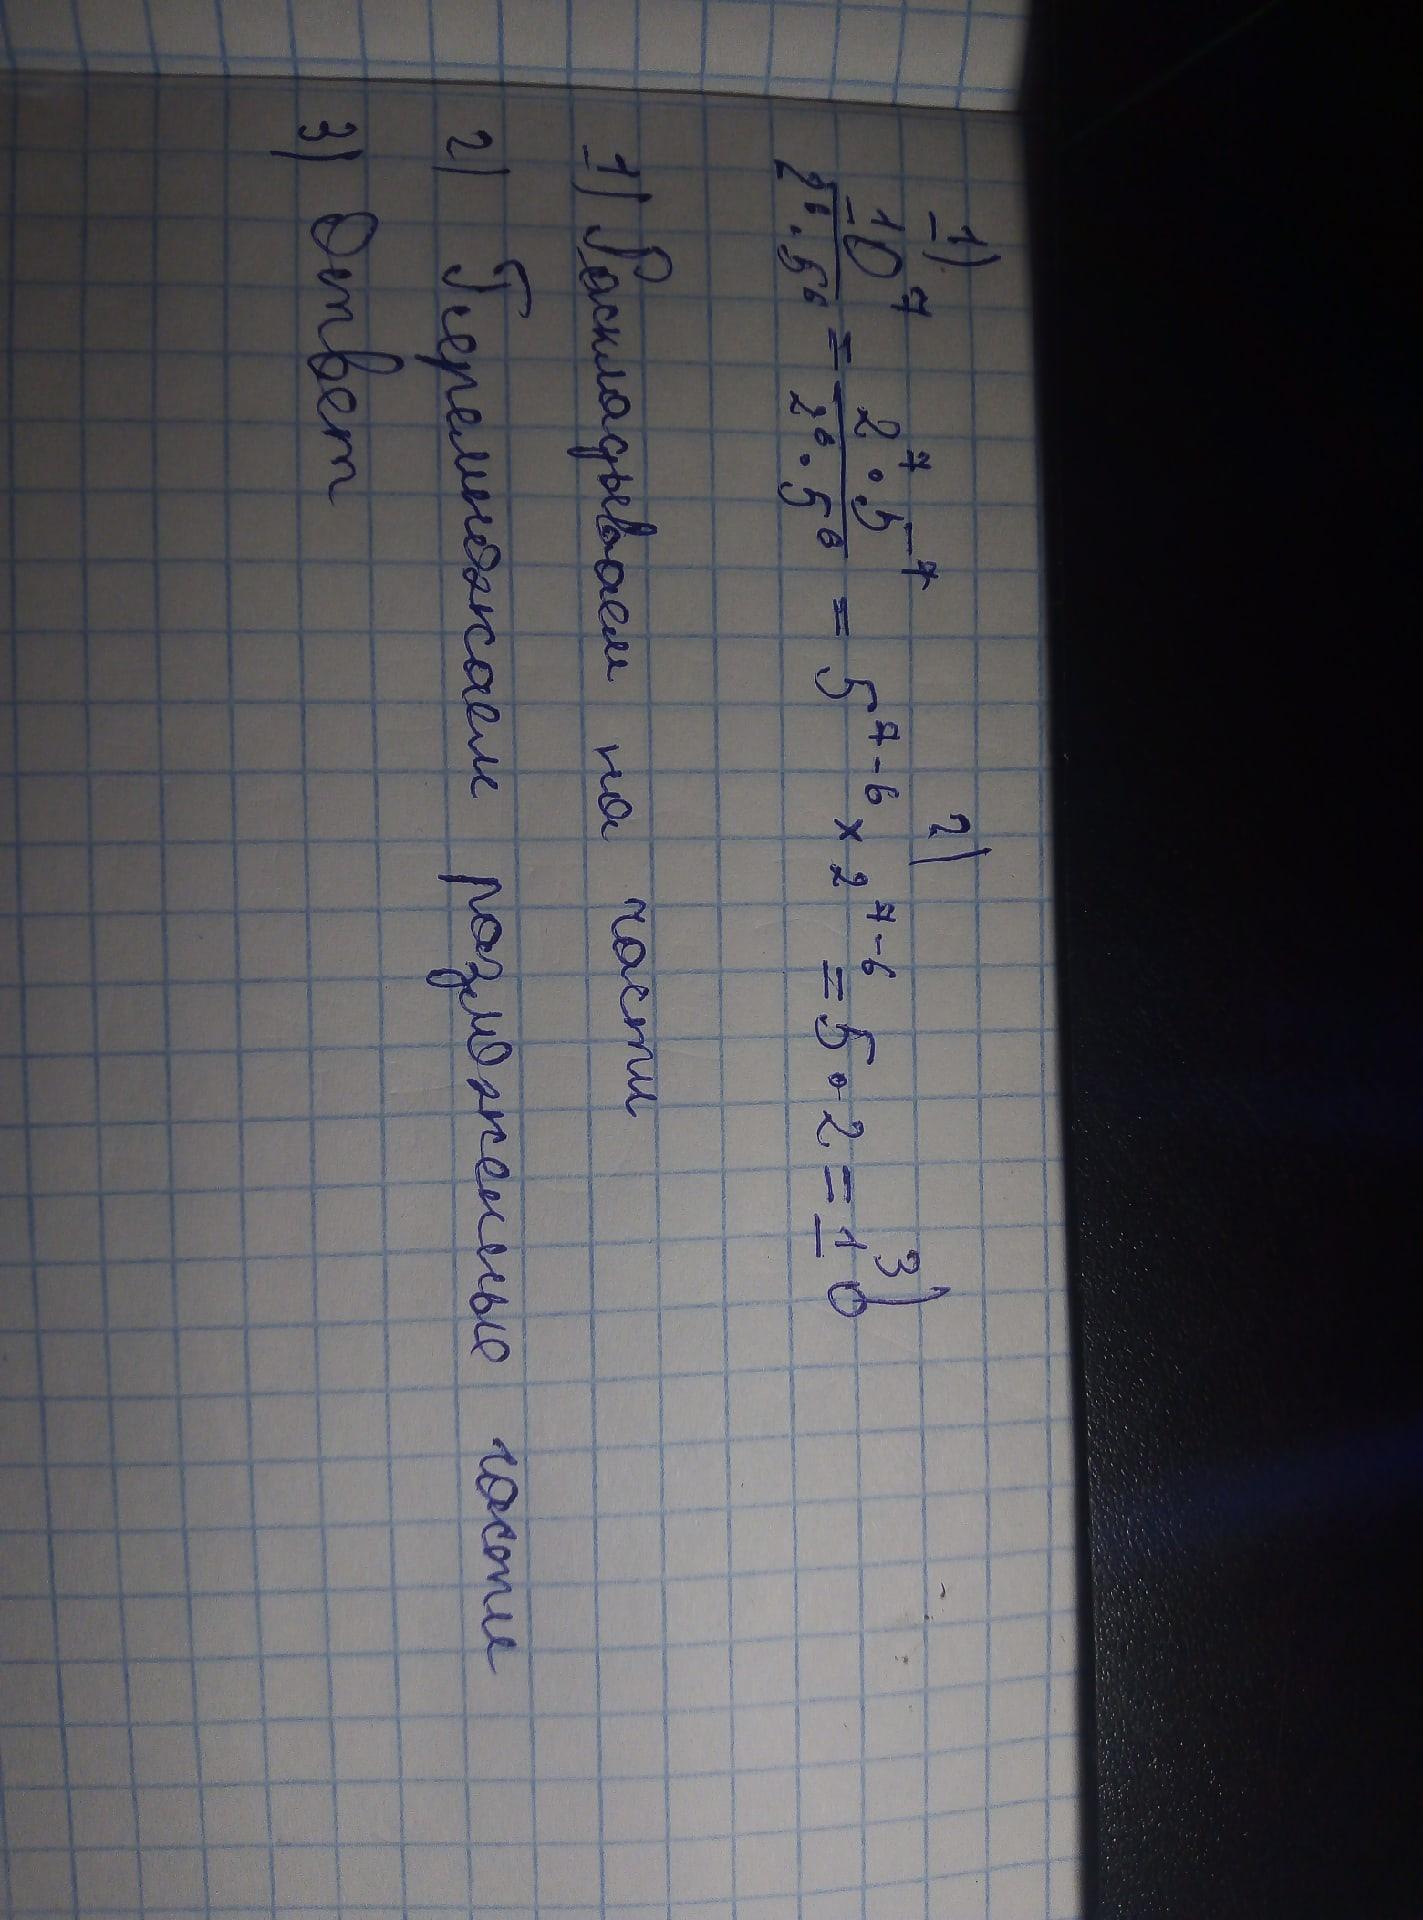 1) 2) 3)
10⁷ / 2⁶·5⁶ = 2⁷·5⁷ / 2⁶·5⁶ = 5⁷⁻⁶ × 2⁷⁻⁶ = 5·2 = 10
1) Раскладываем на части
2) Перемножаем разможеные части
3) Ответ